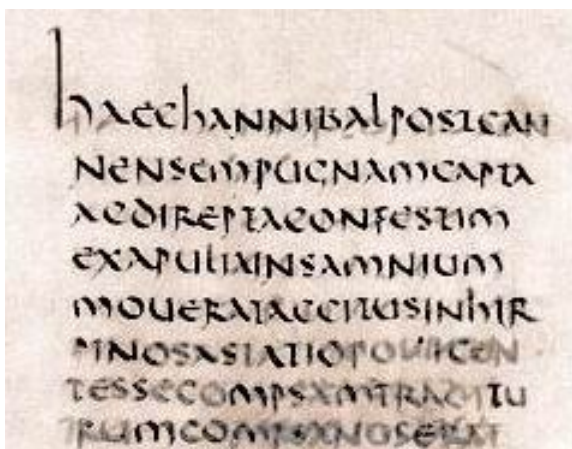 hAECHANNIBALPOSTCAN
NENSEMPUGNAMCAPTA
ACDIREPTACONFESTIM
EXAPULIAINSAMNIUM
MOUERATACCITUSINHIR
PINOSASTATIOPOLLICEN
TESSECOMPSAMTRADITU
RUMCOMPSANOSERAT